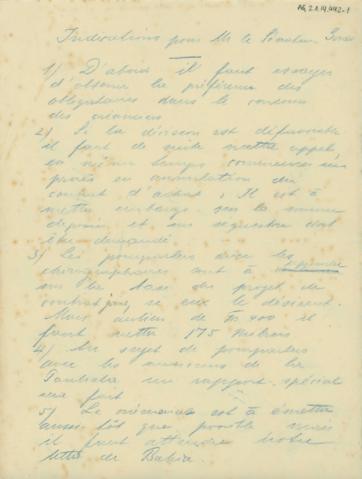 Indications pour Mr le Docteur
1) D'abord il faut essayer
d'obtenir la préférence des
obligataires dans le concours
des créanciers
2) Si la décision est défavorable
il faut de suite mettre appel
en même temps commencer un
procès en annulation du
contrat d'achat. Il est à
mettre embargo sur la somme
déposée et un séquestre doit
être demandé
3) Les pourparlers avec les
sont à
sur la base du projet de
contrat si eux le désirent.
Mais au lieu de 500 il
faut mettre 175
4) Au sujet de pourparlers
avec les de la
un rapport spécial
sera fait
5) Le est à émettre
aussi tôt que possible mais
il faut attendre notre
lettre de Bahia.